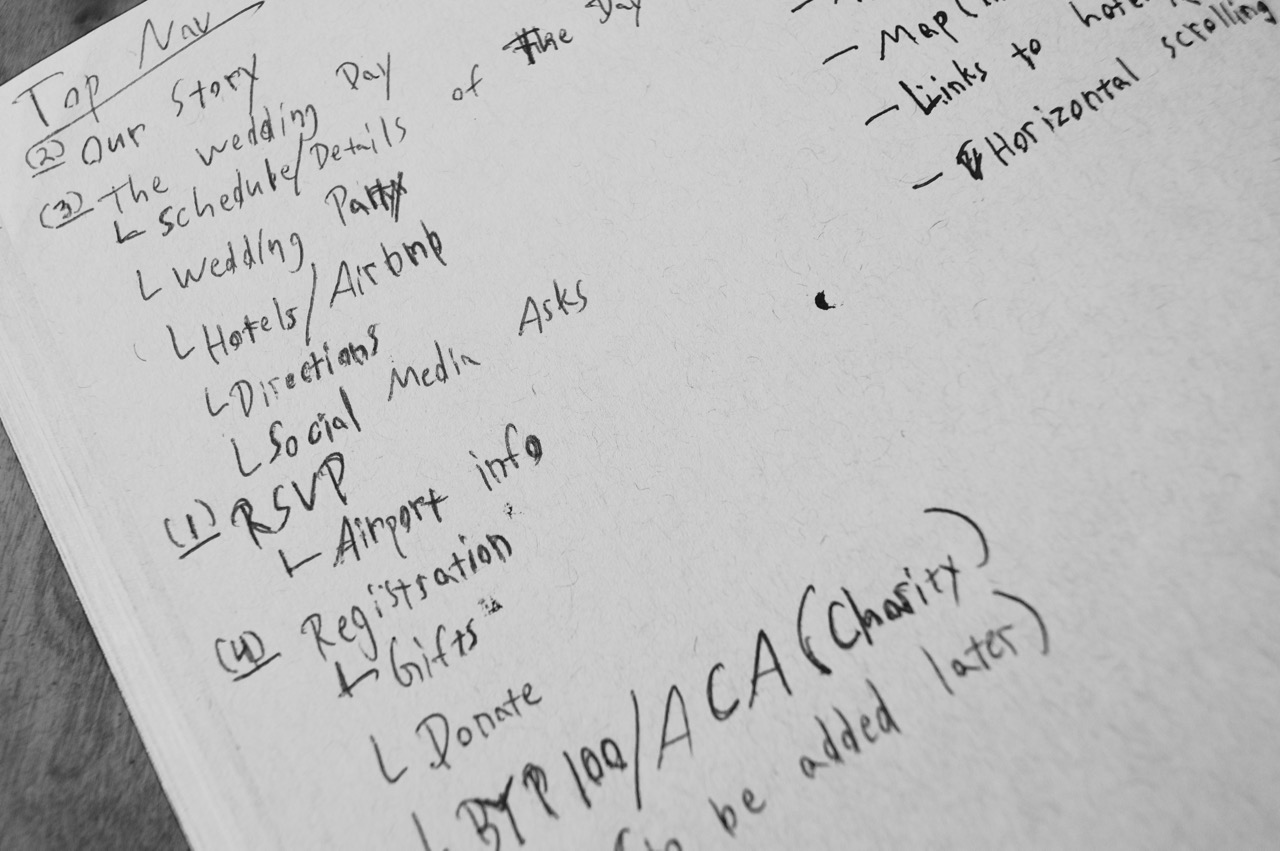 Top Nav
(2) Our Story
(3) The Wedding Day
Schedule/Details of The Day
Wedding Party
Hotels/Airbnb
Directions
Social Media Asks
(1) RSVP
Airport info
(4) Registration
Gifts
Donate
BYP100/ACA (Charity)
be added later)
- Map
- Links to
- Horizontal scrolling